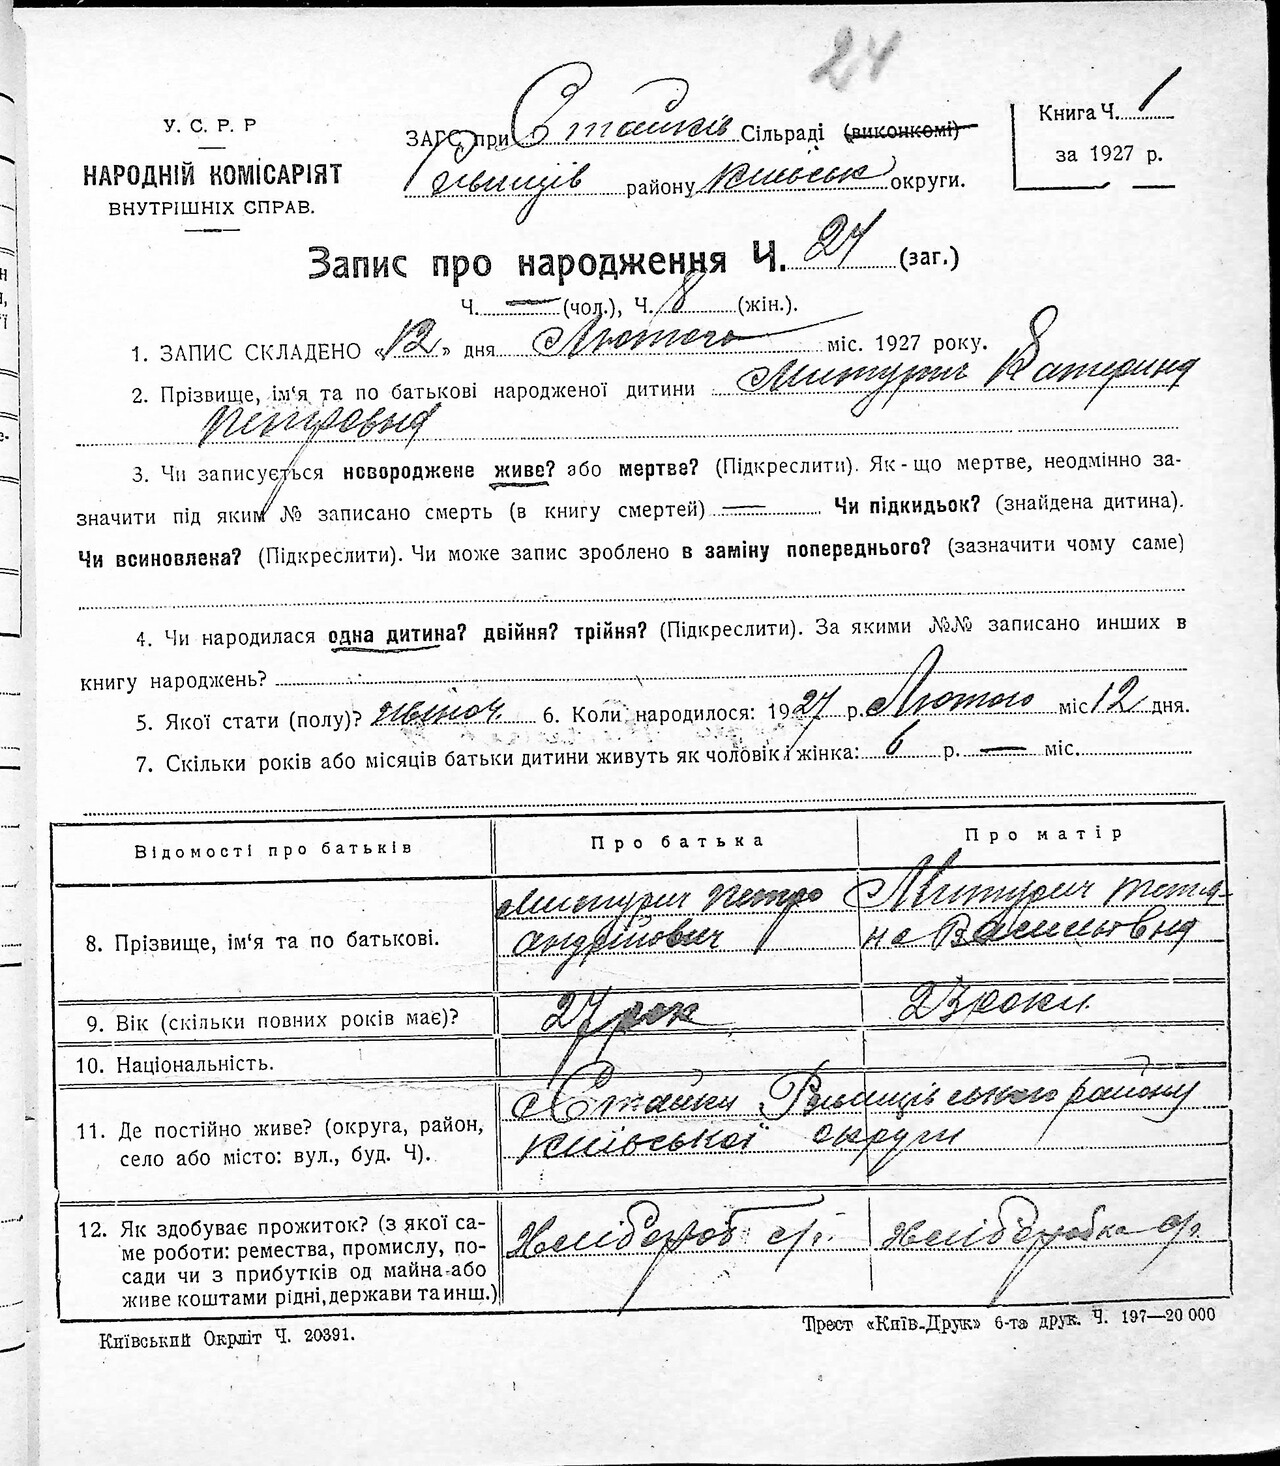 24
У. С. Р. Р
НАРОДНІЙ КОМІСАРІЯТ
ВНУТРІШНІХ СПРАВ.
ЗАГС при Стайків Сільраді (виконкомі)
Ржищів району Київськ округи.
Книга Ч. 1
за 1927 р.
Запис про народження Ч. 24 (заг.)
Ч. — (чол.), Ч. 8 (жін.).
1. ЗАПИС СКЛАДЕНО «12» дня Лютого міс. 1927 року.
2. Прізвище, ім'я та по батькові народженої дитини Митурич Катерина
Петровна
3. Чи записується новороджене живе? або мертве? (Підкреслити). Як-що мертве, неодмінно за-
значити під яким № записано смерть (в книгу смертей) — Чи підкидьок? (знайдена дитина).
Чи всиновлена? (Підкреслити). Чи може запис зроблено в заміну попереднього? (зазначити чому саме)
4. Чи народилася одна дитина? двійня? трійня? (Підкреслити). За якими №№ записано инших в
книгу народжень?
5. Якої стати (полу)? жіноч. 6. Коли народилося: 1927 р. Лютого міс 12 дня.
7. Скільки років або місяців батьки дитини живуть як чоловік і жінка: 6 р. — міс.
Відомості про батьків
Про батька
Про матір
8. Прізвище, ім'я та по батькові.
Митурич Петро
Андрійович
Митурич Тетя-
на Васильевна
9. Вік (скільки повних років має)?
27 рок
23 роки
10. Національність.
11. Де постійно живе? (округа, район,
село або місто: вул., буд. Ч).
с Стайки Ржищівського району
Київської округи
12. Як здобуває прожиток? (з якої са-
ме роботи: ремества, промислу, по-
сади чи з прибутків од майна або
живе коштами рідні, держави та инш.)
Хлібороб с/г.
Хліборобка с/г.
Київський Окрліт Ч. 20391.
Трест «Київ-Друк» 6-та друк. Ч. 197—20 000